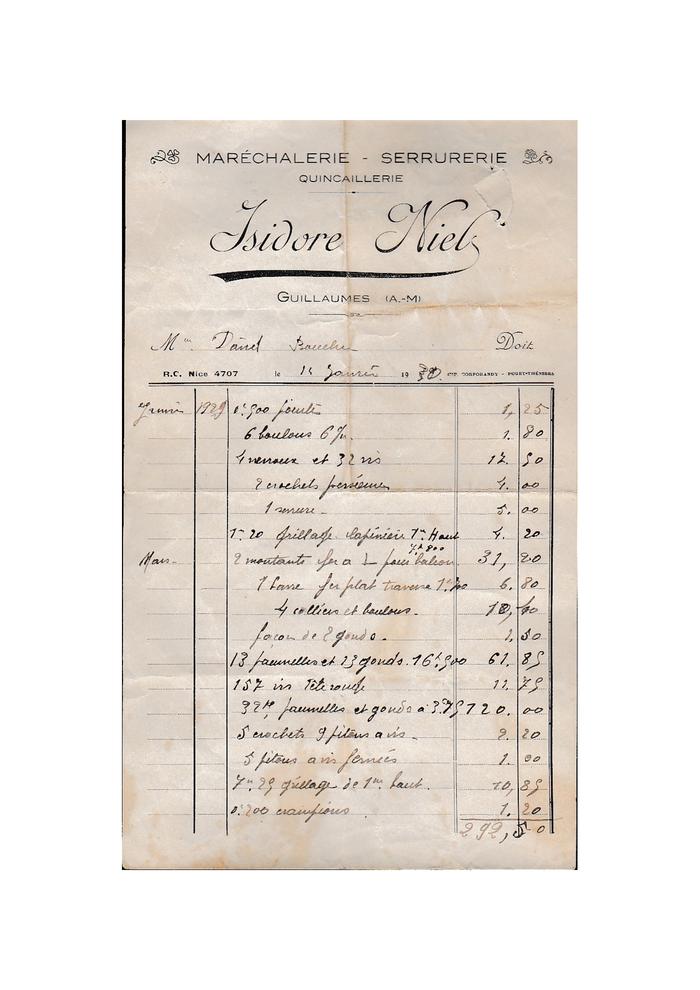 MARÉCHALERIE - SERRURERIE
QUINCAILLERIE
Isidore Niel
GUILLAUMES (A.-M)
Mr Daniel Doit
R.C. Nice 4707 le 14 Janvier 1930. IMP. CORPORANDY - PUGET-THÉNIERS
Janvier 1929 0k.500 pointe 1, 25
6 boulons 1. 80
4 verroux et 32 vis 17. 50
2 crochets persienne 4. 00
1 serrure - 5. 00
1m 20 grillage lapinière 1m Haut 4. 20
Mars - 2 montants fer a L pour balcon 31, 20
1 barre fer plat traverse 6. 80
4 colliers et boulons. 10, 40
façon de 2 gonds. 1. 50
13 paumelles et 13 gonds. 16k500 61. 85
157 vis tête ronde 11. 75
32k paumelles et gonds à 3.75 120. 00
5 crochets 9 pitons a vis - 2. 20
5 pitons a vis fermés 1. 00
7m 25 grillage de 1m haut. 10, 85
0k200 crampions 1. 20
292, 50